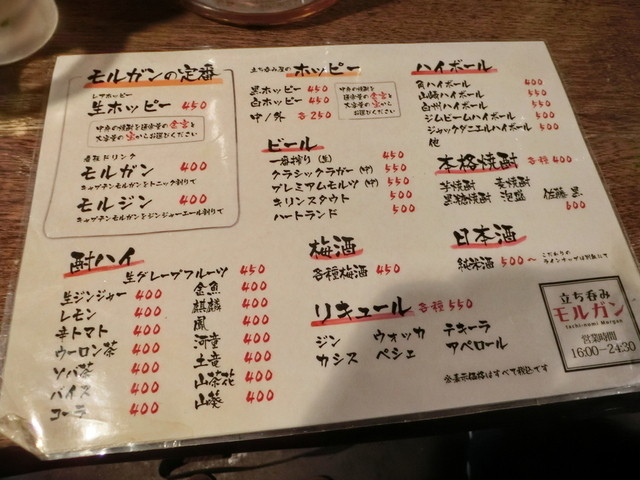 モルガンの定番
レアホッピー
生ホッピー 450
看板ドリンク
モルガン 400
キャプテンモルガンをトニック割りで
モルジン 400
キャプテンモルガンをジンジャーエール割りで
立ち呑み屋のホッピー
黒ホッピー 450
白ホッピー 450
中/外 各250
ビール
一番搾り(生) 450
クラシックラガー(中) 550
プレミアムモルツ(中) 550
キリンスタウト 500
ハートランド 500
ハイボール
角ハイボール 400
山崎ハイボール 550
白州ハイボール 550
ジムビームハイボール 400
ジャックダニエルハイボール 500
他
本格焼酎 各種400
芋焼酎 麦焼酎
黒糖焼酎 泡盛 佐藤黒
500
酎ハイ
生グレープフルーツ 450
生ジンジャー 400
レモン 400
辛トマト 400
ウーロン茶 400
ソバ茶 400
バイス 400
コーラ 400
金魚 400
麒麟 400
鳳 400
河童 400
土竜 400
山茶花 400
山葵 400
梅酒
各種梅酒 450
日本酒
純米酒 500〜
こだわりの
ラインナップは別紙にて
リキュール 各種550
ジン ウォッカ テキーラ
カシス ペシェ アペロール
※表示価格はすべて税込です
立ち呑み
モルガン
tachi-nomi Morgan
営業時間
16:00-24:30